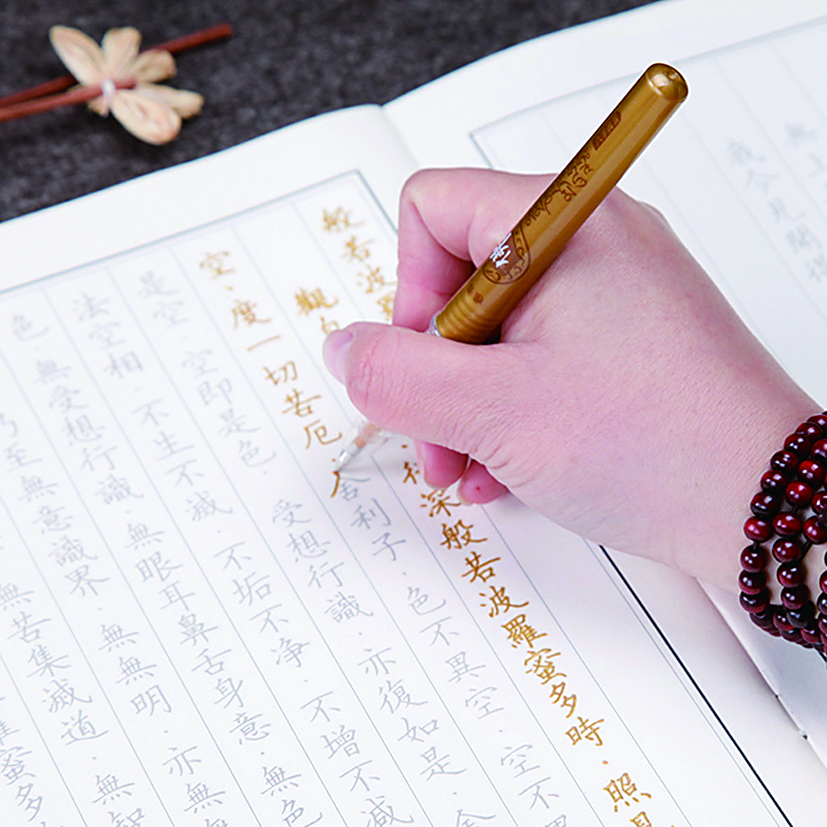 無上
我今見聞得
般若波
觀自行深般若波羅蜜多時．照見
空．度一切苦厄．舍利子．色不異空．空不
是空．空即是色．受想行識．亦復如是．舍
法空相．不生不滅．不垢不净．不增不減
色．無受想行識．無眼耳鼻舌身意．無色
乃至無意識界．無無明．亦無
無苦集滅道．無智
羅蜜多